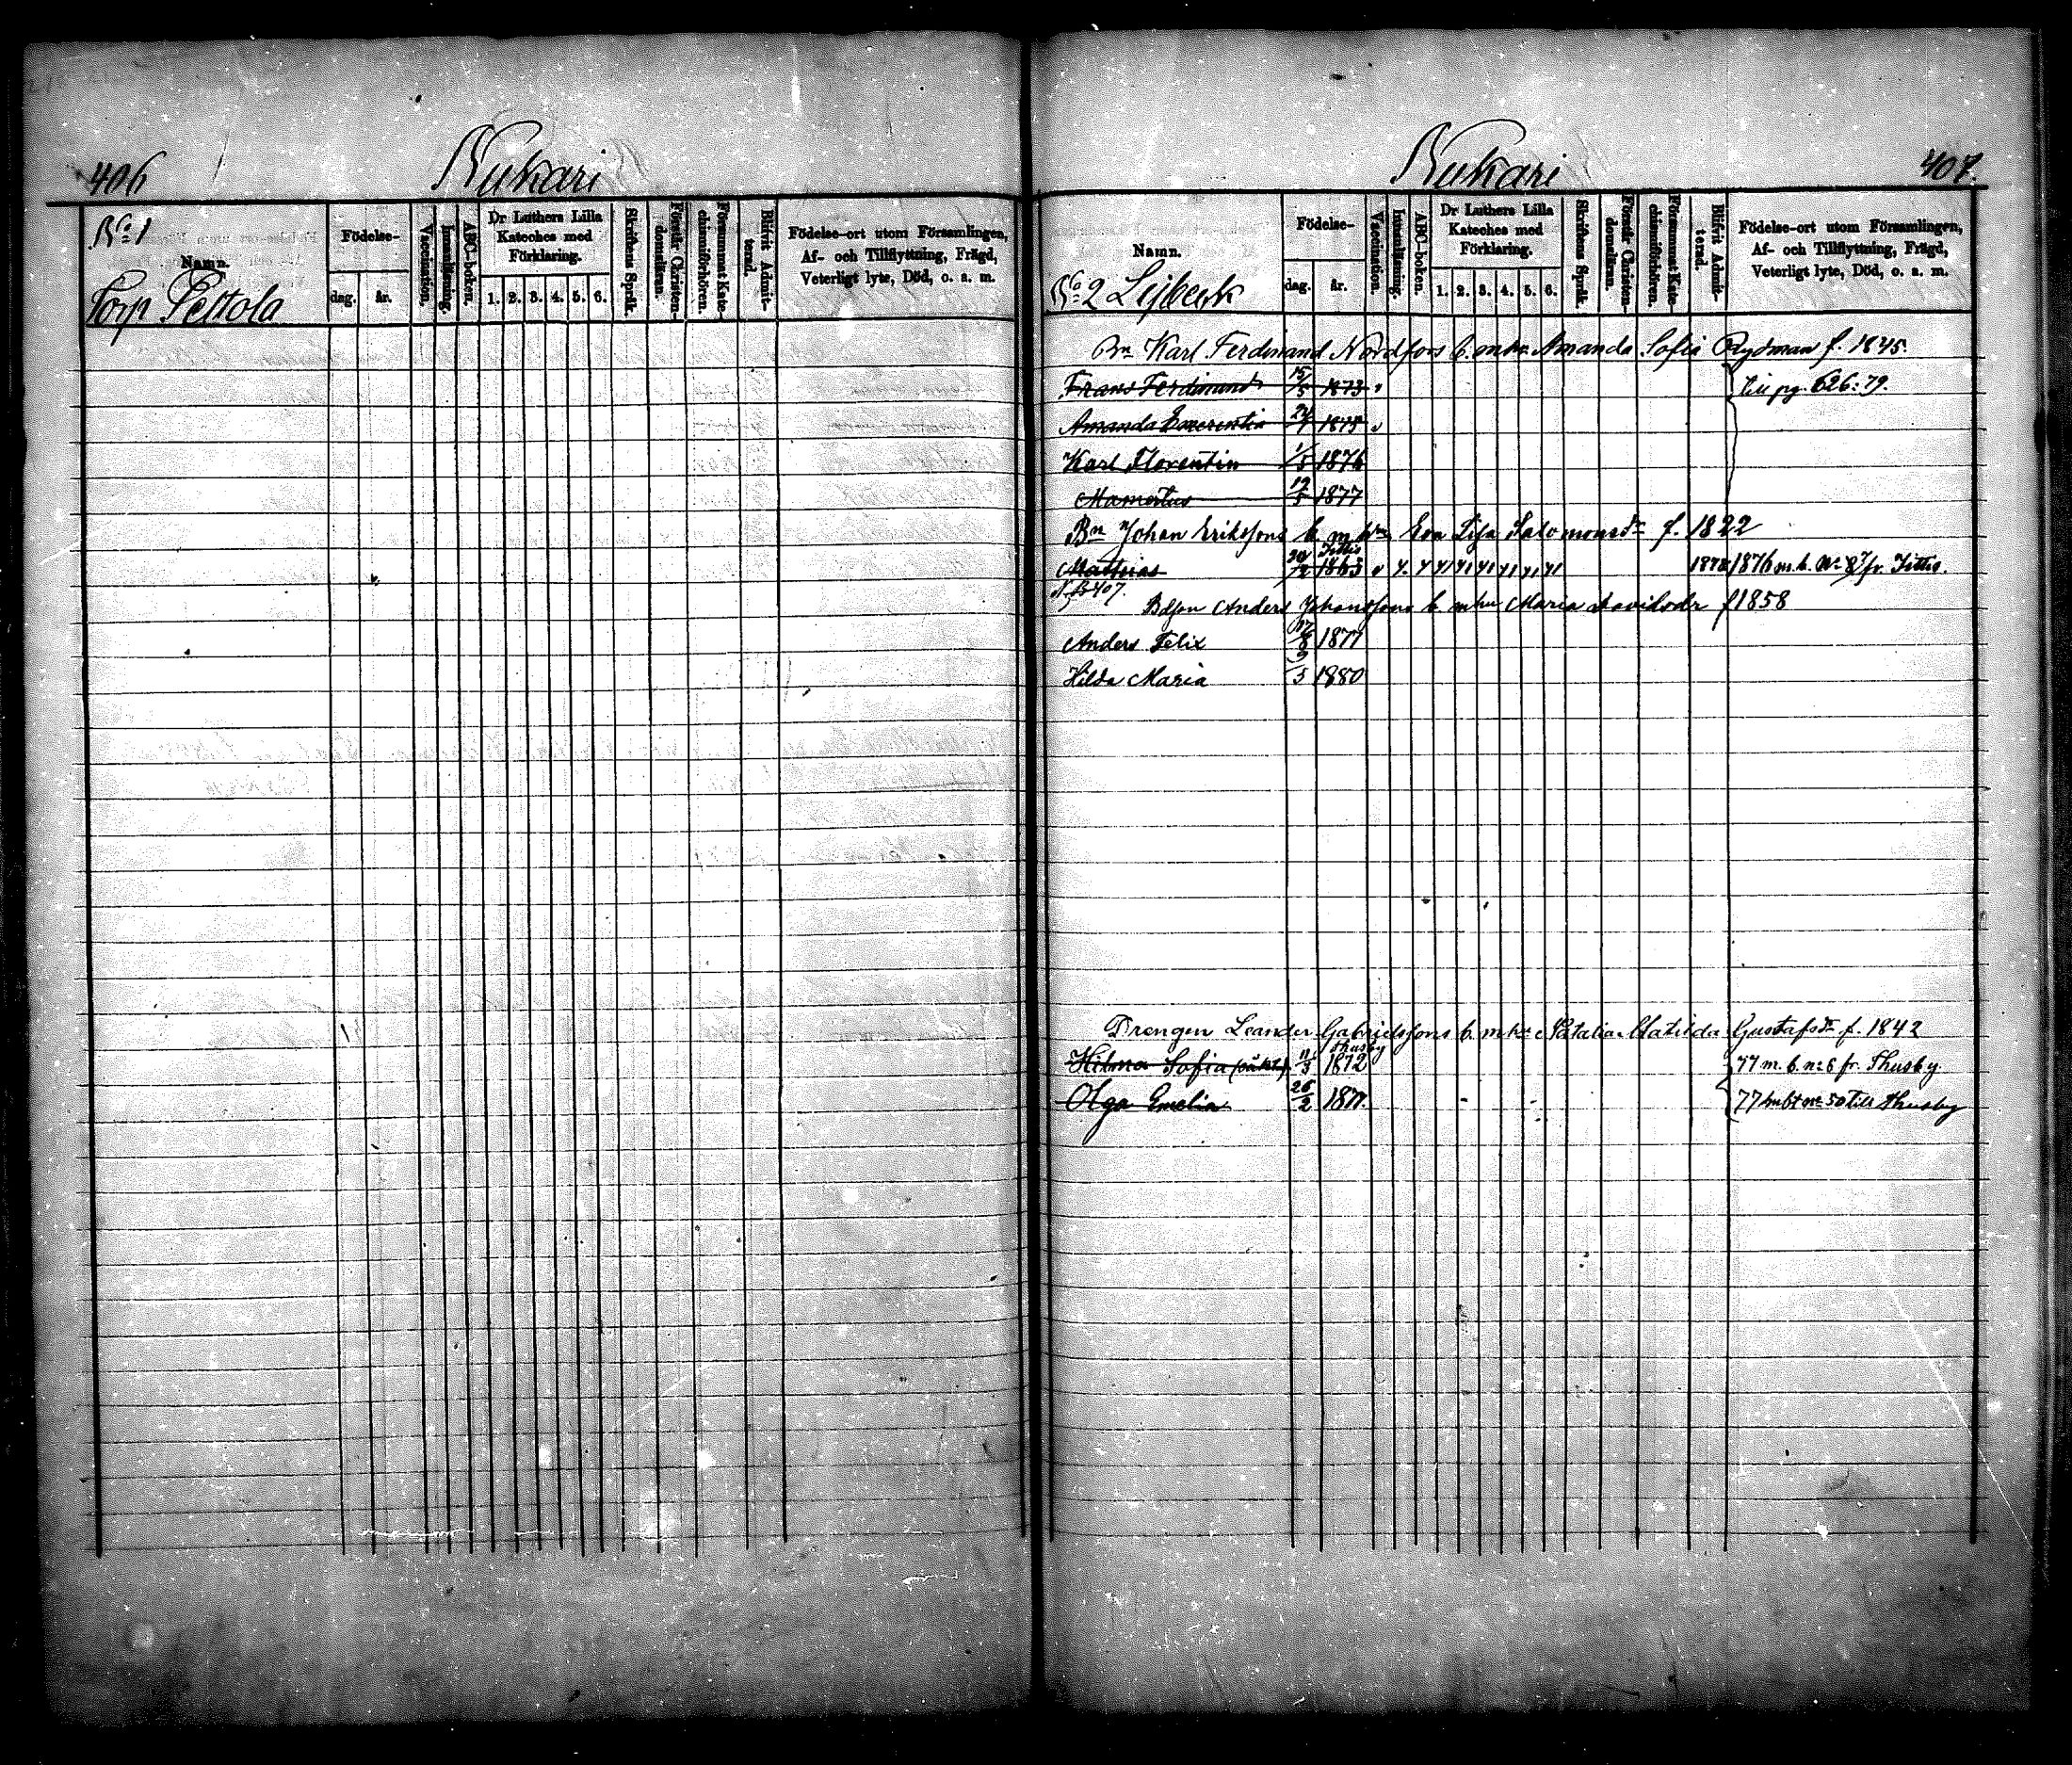 406
Nukari
No 1
Namn.
Torp Pettola
Födelse-
dag.
år.
Vaccination.
Innanläsning.
ABC-boken.
Dr Luthers Lilla
Kateches med
Förklaring.
1. 2. 3. 4. 5. 6.
Skriftens Språk.
Förstår Christen-
domsläran.
Försummat Kate-
chismiförhören.
Blifvit Admit-
terad.
Födelse-ort utom Församlingen,
Af- och Tillflyttning, Frägd,
Veterligt lyte, Död, o. s. m.
407.
Nukari
Namn.
No 2 Lejbeck
Födelse-
dag.
år.
Vaccination.
Innanläsning.
ABC-boken.
Dr Luthers Lilla
Kateches med
Förklaring.
1. 2. 3. 4. 5. 6.
Skriftens Språk.
Förstår Christen-
domsläran.
Försummat Kate-
chismiförhören.
Blifvit Admit-
terad.
Födelse-ort utom Församlingen,
Af- och Tillflyttning, Frägd,
Veterligt lyte, Död, o. s. m.
Bn Karl Ferdinand Nordfors b. m hu Amanda Sofia Rydman f. 1845.
Frans Ferdinand 15/5 1873 Till pg. 626: 79.
Amanda Emerentia 1875
Karl Florentin 1/5 1876
Mamertus 19/5 1877
Bn Johan Erikssons b. m hu Eva Lisa Salomonsdr f. 1822
Mathias 20/12 1863 1876 m. b. fr. Tittis.
N B 407.
Bdson Anders Johanssons b. m hu Maria Davidsdr f 1858
Anders Felix 17/8 1877
Hilda Maria 9/3 1880
Drengen Leander Gabrielssons b. m hu Natalia Matilda Gustafsdr f. 1842
Hilma Sofia (oäkta) 11/3 Thusby 1872 77 m. b. no 6 fr. Thusby.
Olga Emelia 26/2 1877. 77 m bt no 50 till Thusby